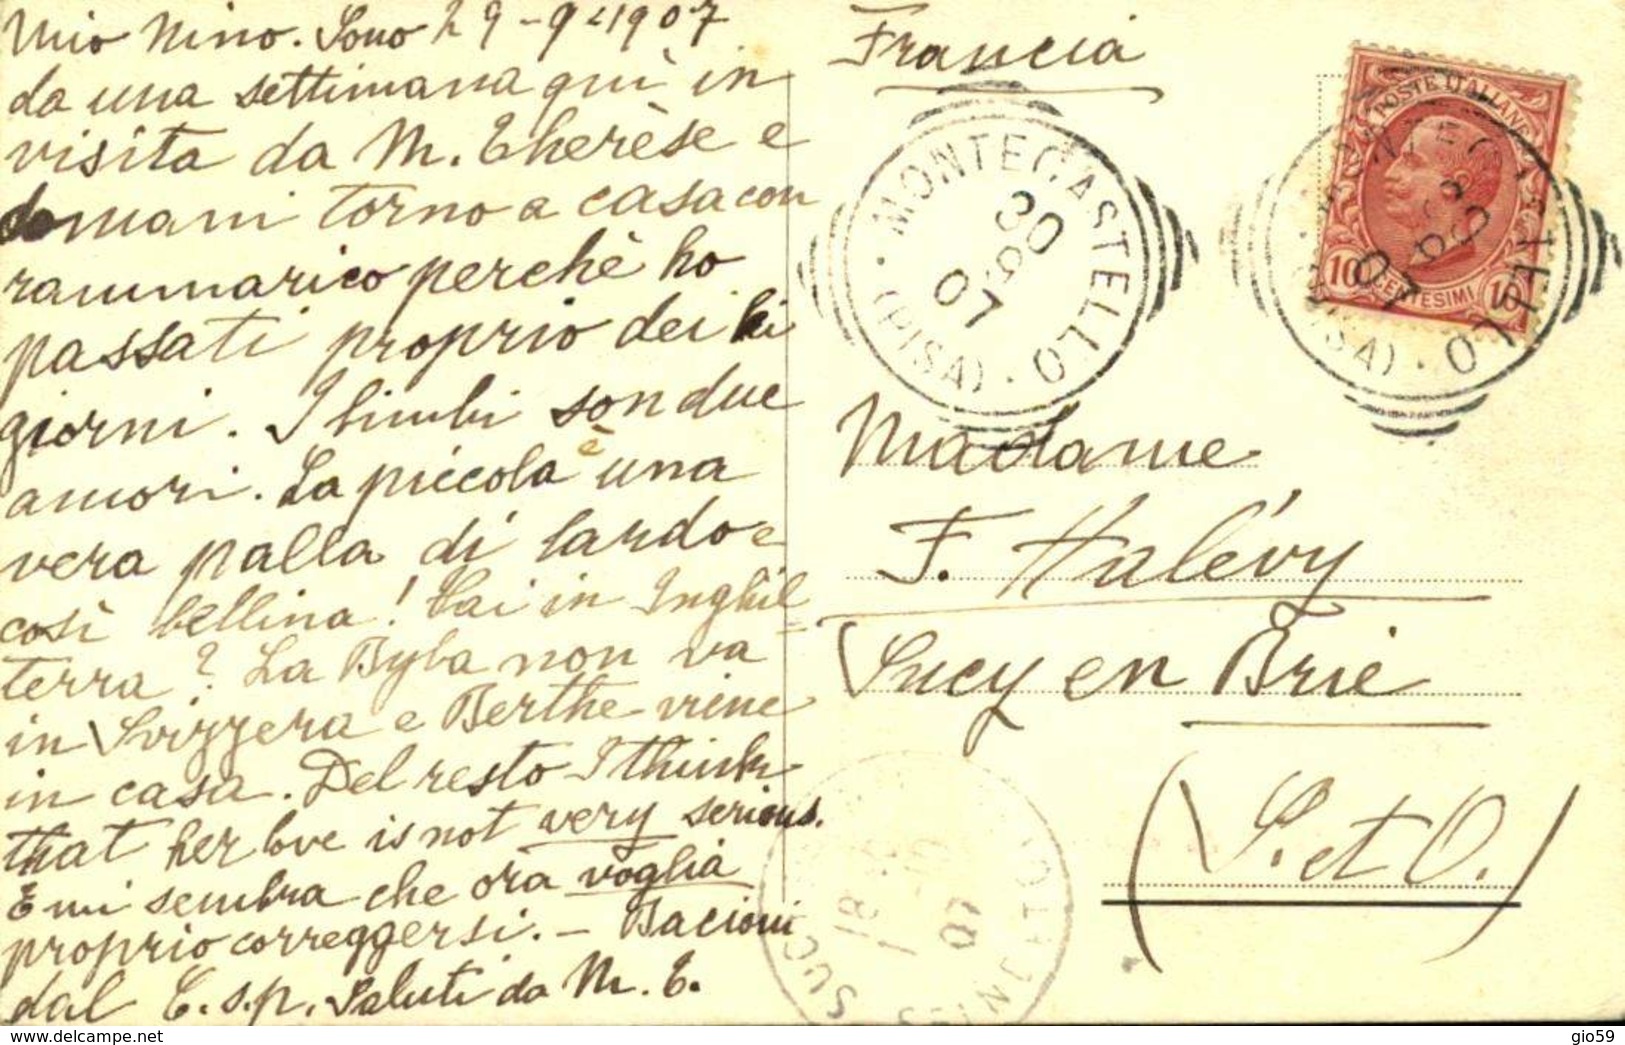 Mio Nino. Sono 29-9-1907
da una settimana qui in
visita da M. Therèse e
domani torno a casa con
rammarico perchè ho
passati proprio dei bei
giorni. I bimbi son due
amori. La piccola è una
vera palla di lardo e
così bellina! Vai in Inghil
terra? La Byba non va
in Svizzera e Berthe viene
in casa. Del resto I think
that her love is not very serious.
E mi sembra che ora voglia
proprio correggersi. - Bacioni
dal T.s.p. Saluti da M. T.
Francia
MONTECASTELLO
(PISA)
30
9
07
POSTE ITALIANE
10 CENTESIMI 10
MONTECASTELLO
(PISA)
30
9
07
Madame
F. Halévy
Sucy en Brie
(S. et O.)
SUCY
07
gio59